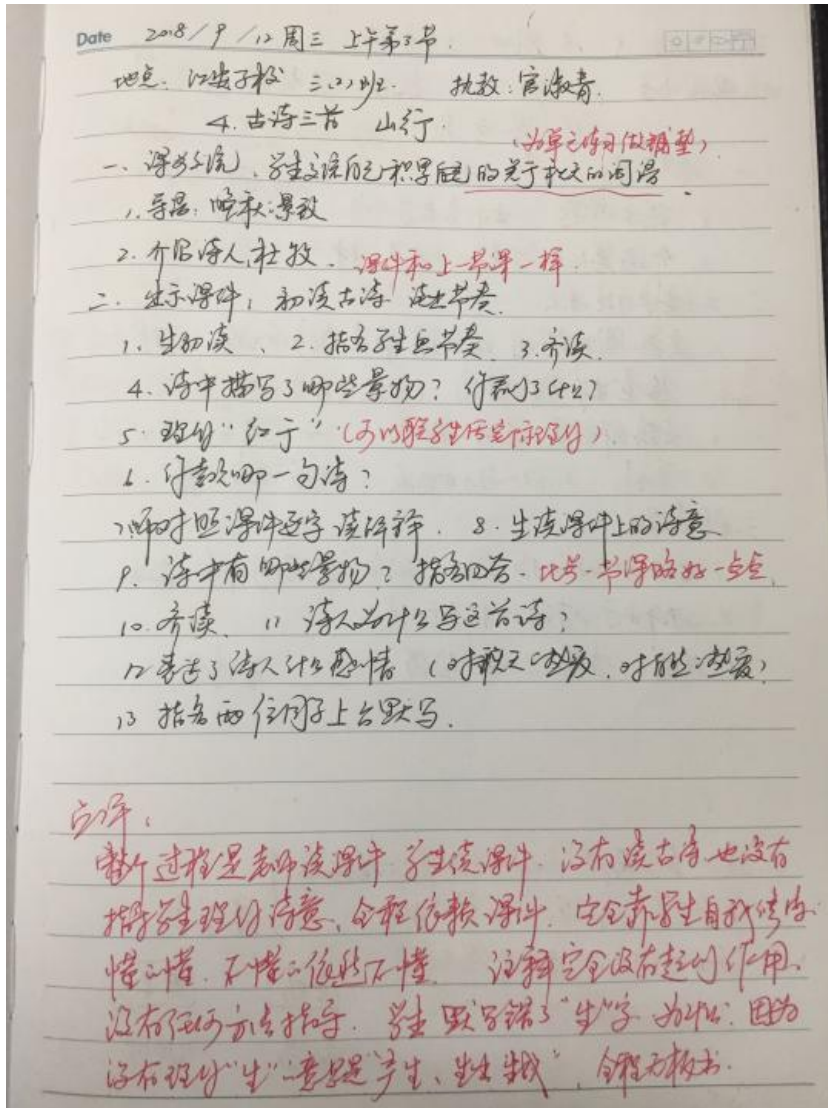 Date 2018/9/12 周三 上午第3节.
地点: 江安子校 三(2)班. 执教:官淑青.
4.古诗三首 山行.
(为单元练习做铺垫)
一、课前交流,学生交流自己积累的关于秋天的词语.
1.导语:晚秋景致
2.介绍诗人,杜牧. 课件和上一节课一样.
二.出示课件,初读古诗 读出节奏.
1.生初读、2.指名学生画节奏 3.齐读.
4.诗中描写了哪些景物?你看到了什么?
5.理解“红于”(可以联系学生生活实际理解).
6.你喜欢哪一句诗?
7.师对照课件逐字读解释. 8.生读课件上的诗意
9.诗中有哪些景物?指名回答.比上一节课略好一点点.
10.齐读、11 诗人为什么写这首诗?
12表达了诗人什么感情(对秋天的热爱.对自然的热爱)
13 指名两位同学上台默写.
点评:
整个过程是老师读课件 学生读课件.没有读古诗也没有
指导学生理解诗意、全程依赖课件.完全靠学生自我
懂的懂.不懂的依然不懂. 注释完全没有起到作用、
没有任何方法指导. 学生默写错了“生”字 为什么.因为
没有理解“生”的意思是“产生、生出”,全程无板书.